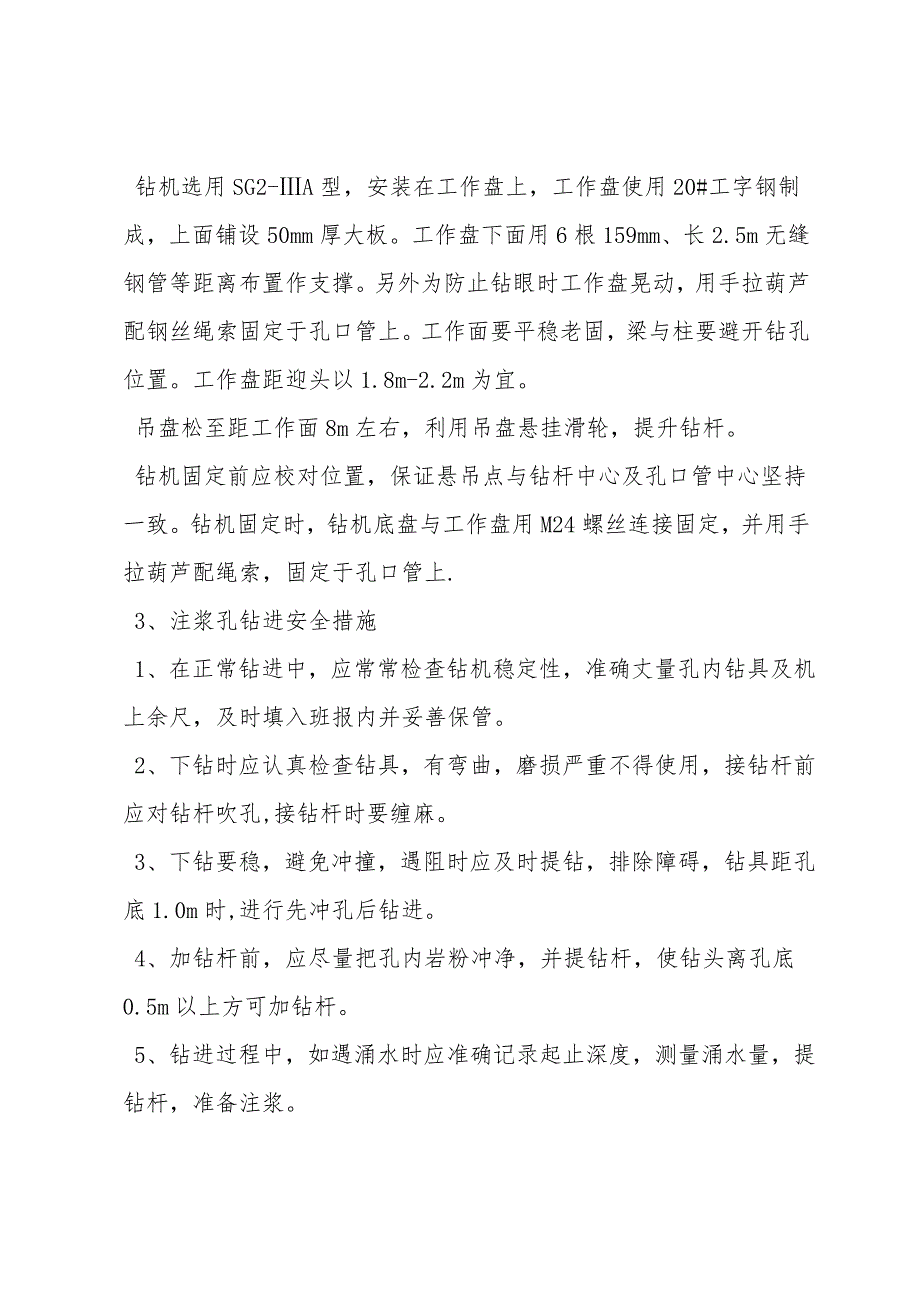 钻机选用 SG2-ⅢA 型，安装在工作盘上，工作盘使用 20#工字钢制
成，上面铺设 50mm 厚大板。工作盘下面用 6 根 159mm、长 2.5m 无缝
钢管等距离布置作支撑。另外为防止钻眼时工作盘晃动，用手拉葫芦
配钢丝绳索固定于孔口管上。工作面要平稳老固，梁与柱要避开钻孔
位置。工作盘距迎头以 1.8m-2.2m 为宜。
吊盘松至距工作面 8m 左右，利用吊盘悬挂滑轮，提升钻杆。
钻机固定前应校对位置，保证悬吊点与钻杆中心及孔口管中心坚持
一致。钻机固定时，钻机底盘与工作盘用 M24 螺丝连接固定，并用手
拉葫芦配绳索，固定于孔口管上.
3、注浆孔钻进安全措施
1、在正常钻进中，应常常检查钻机稳定性，准确丈量孔内钻具及机
上余尺，及时填入班报内并妥善保管。
2、下钻时应认真检查钻具，有弯曲，磨损严重不得使用，接钻杆前
应对钻杆吹孔,接钻杆时要缠麻。
3、下钻要稳，避免冲撞，遇阻时应及时提钻，排除障碍，钻具距孔
底 1.0m 时,进行先冲孔后钻进。
4、加钻杆前，应尽量把孔内岩粉冲净，并提钻杆，使钻头离孔底
0.5m 以上方可加钻杆。
5、钻进过程中，如遇涌水时应准确记录起止深度，测量涌水量，提
钻杆，准备注浆。